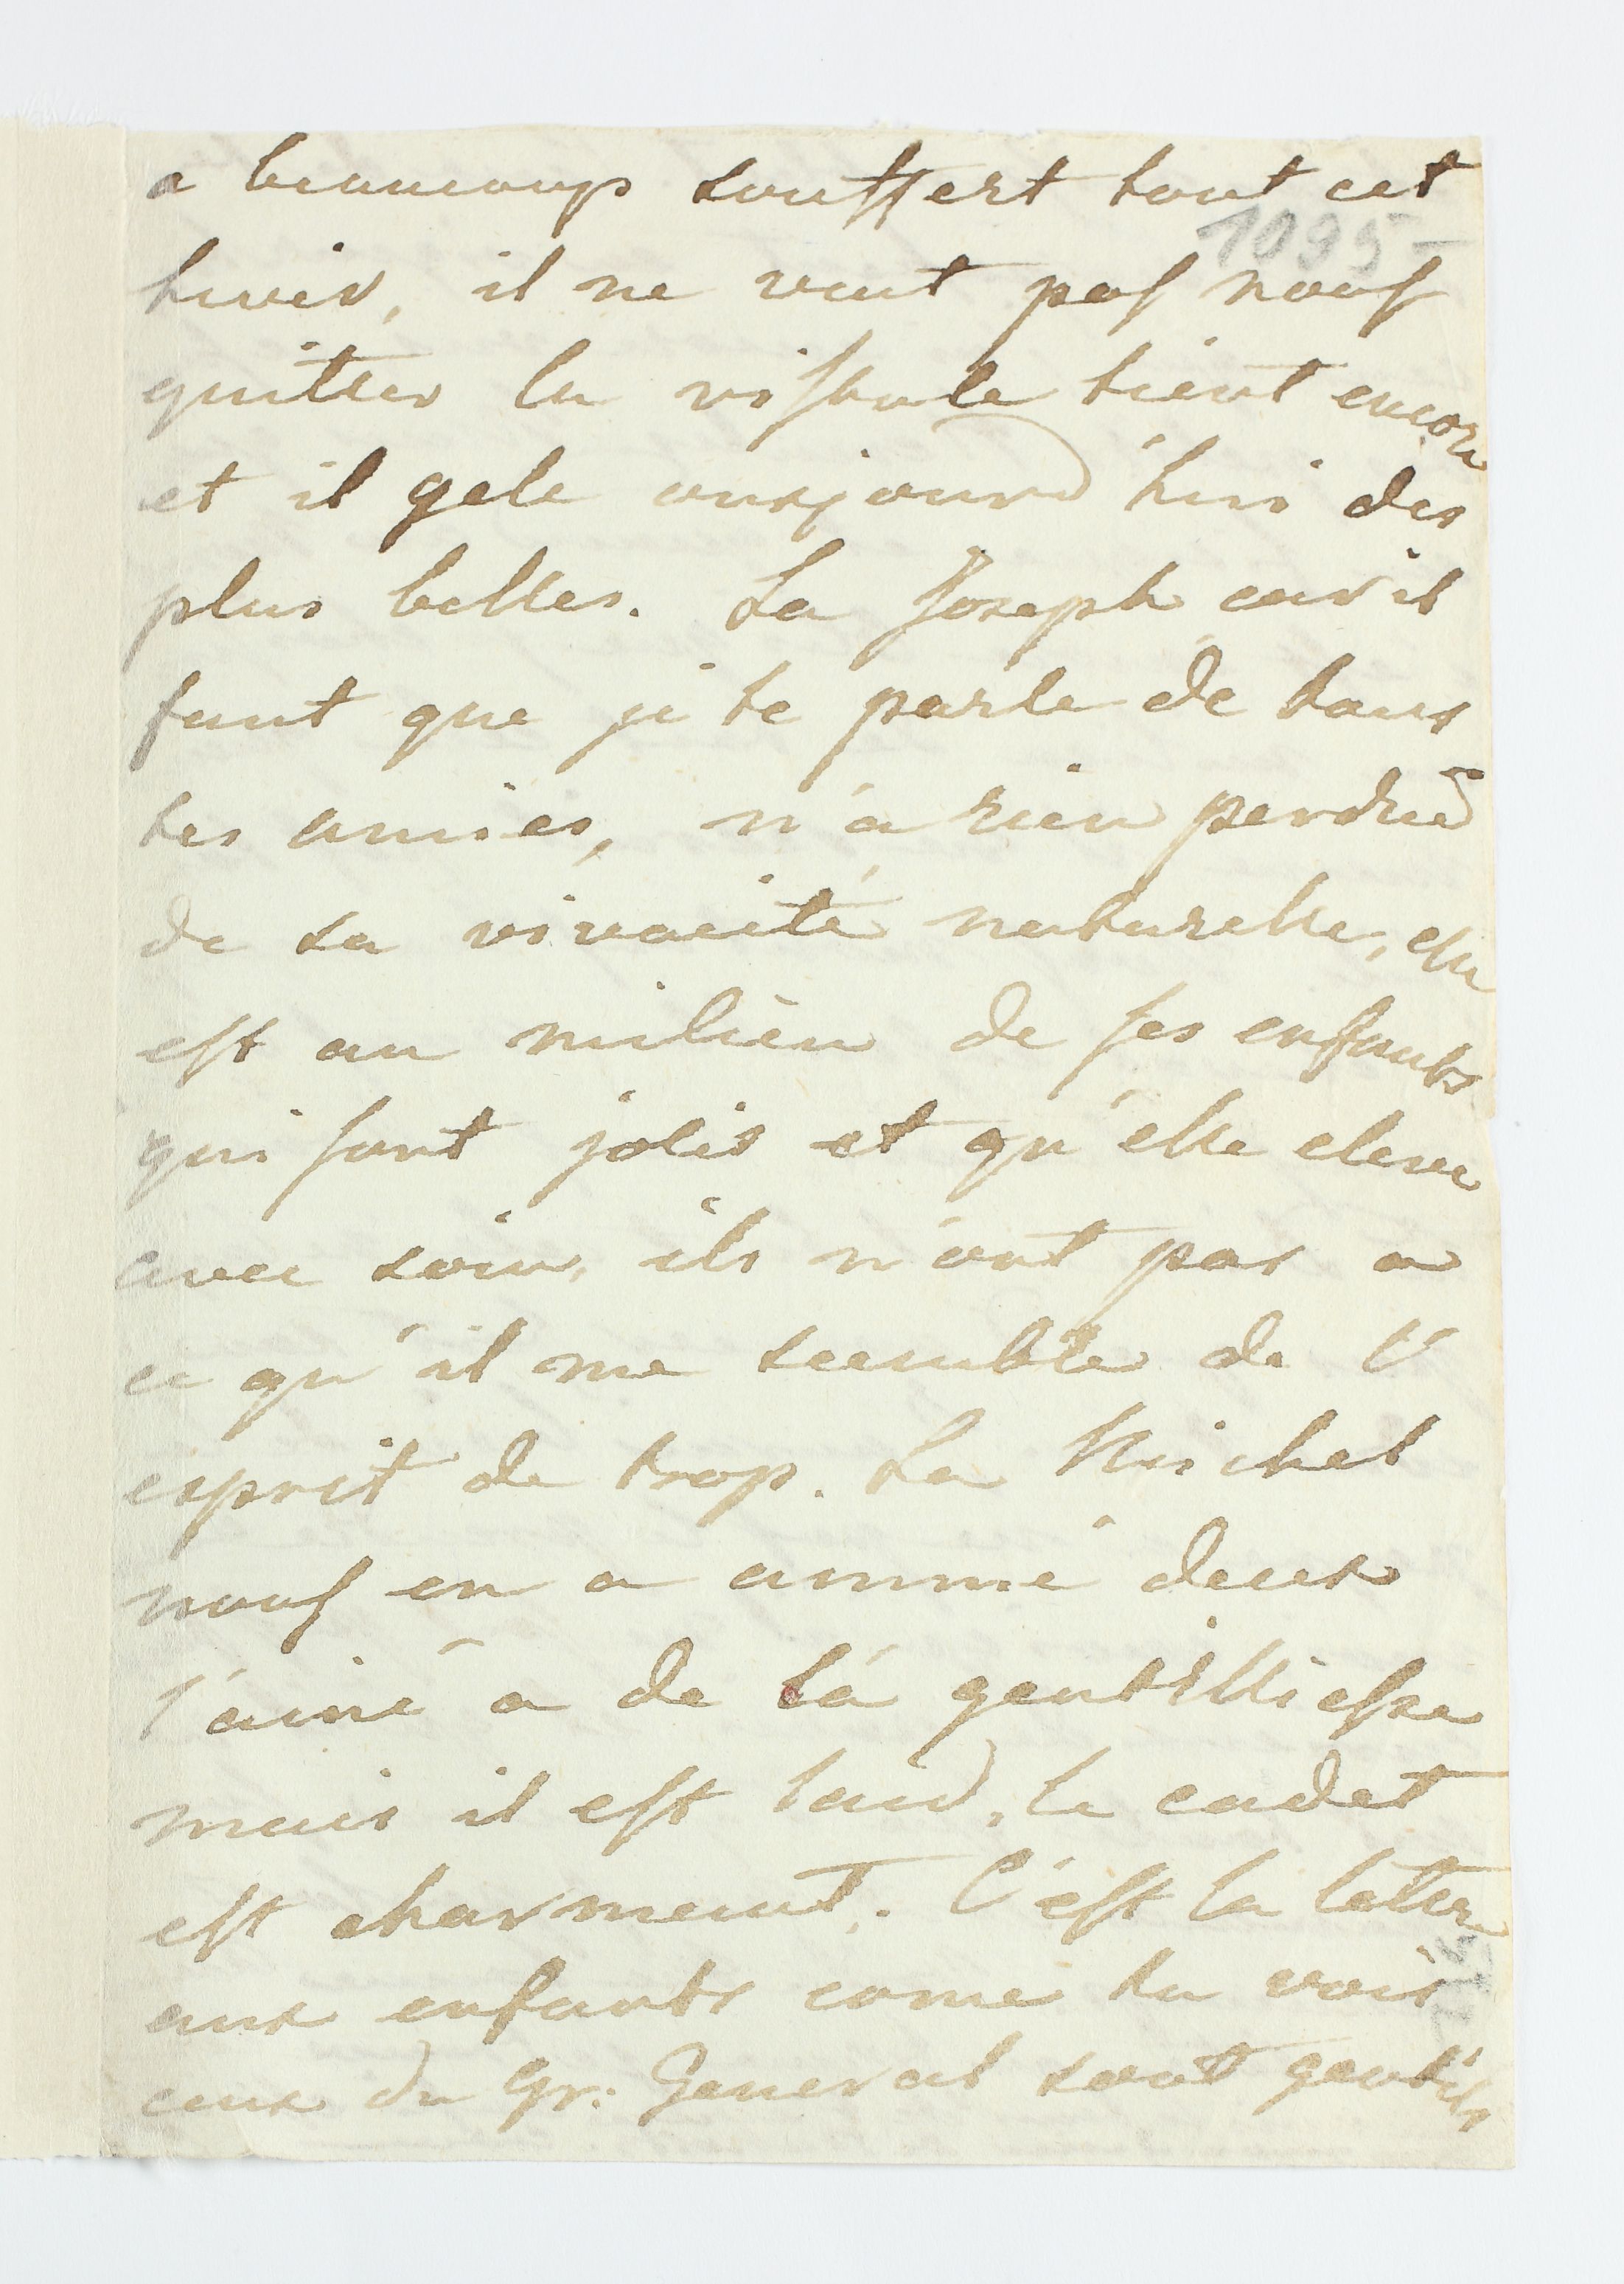 a beaucoup souffert tout cet
1095
hiver, il ne veut pas nous
quitter la vistule tient encore
et il gele ausjourd'hui des
plus belles. La Joseph car il
faut que je te parle de tous
tes amies, n'a rien perdue
de sa vivacité naturelle, elle
est au milieu de ses enfants
qui sont jolis et qu'elle eleve
avec soin, ils n'ont pas a
ce qu'il me semble de l'
esprit de trop. La Michel
nous en a ammé deux
l'ainé a de la gentilliesse
mais il est laid, le cadet
est charment. C'est la lettre
aux enfants come tu vois
ceux du Gr: General sont gentils